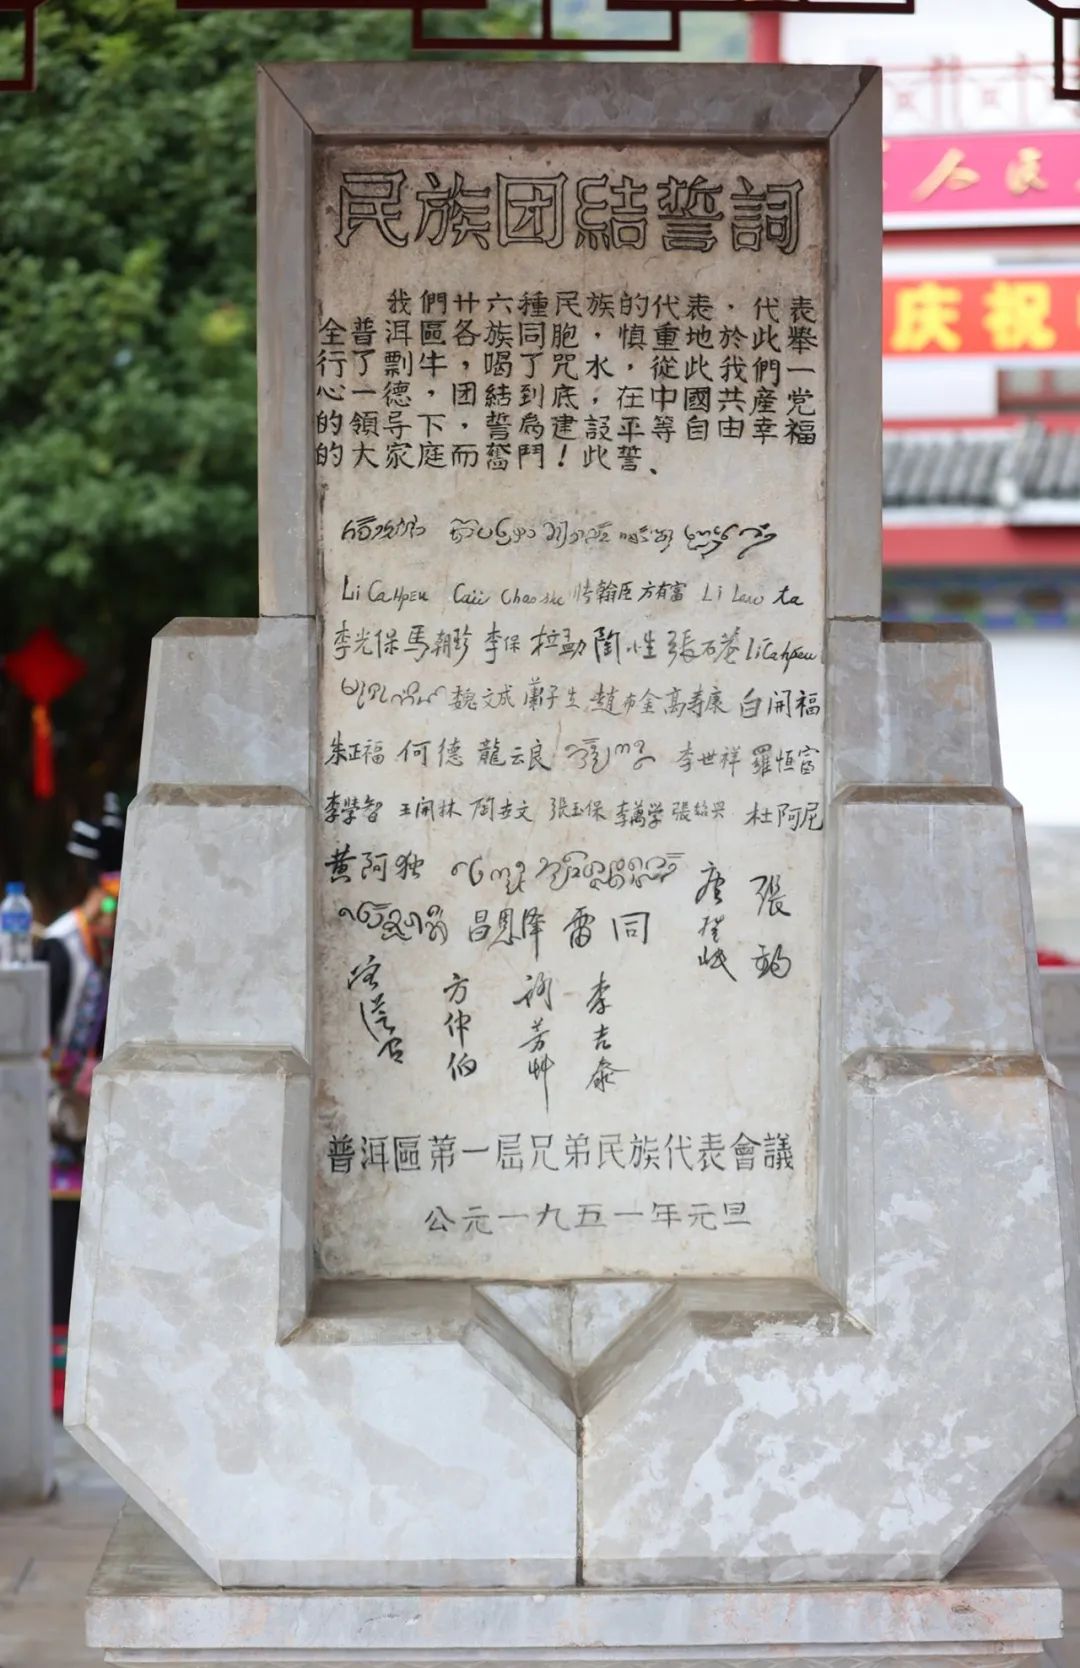 民族团結誓詞
我們廿六種民族的代表，代表
全普洱區各族同胞，慎重地於此舉
行了剽牛，喝了咒水，從此我們一
心一德，团結到底，在中國共產党
的領导下，誓為建設平等自由幸福
的大家庭而奮鬥！此誓、
Li Cahpeu 翰臣 方有富
李光保 馬朝珍 李保 拉勐 陶 性 張石菴 Li Cahpeu
魏文成 蕭子生 趙布金 高寿康 白開福
朱正福 何德 龍云良 李世祥 羅恒富
李學智 王開林 陶世文 張玉保 李萬学 張紹興 杜阿尼
黃阿独 唐登岷 張鈞
昌恩泽 雷同
方仲伯 李吉泰
普洱區第一屆兄弟民族代表會議
公元一九五一年元旦
人民
庆祝